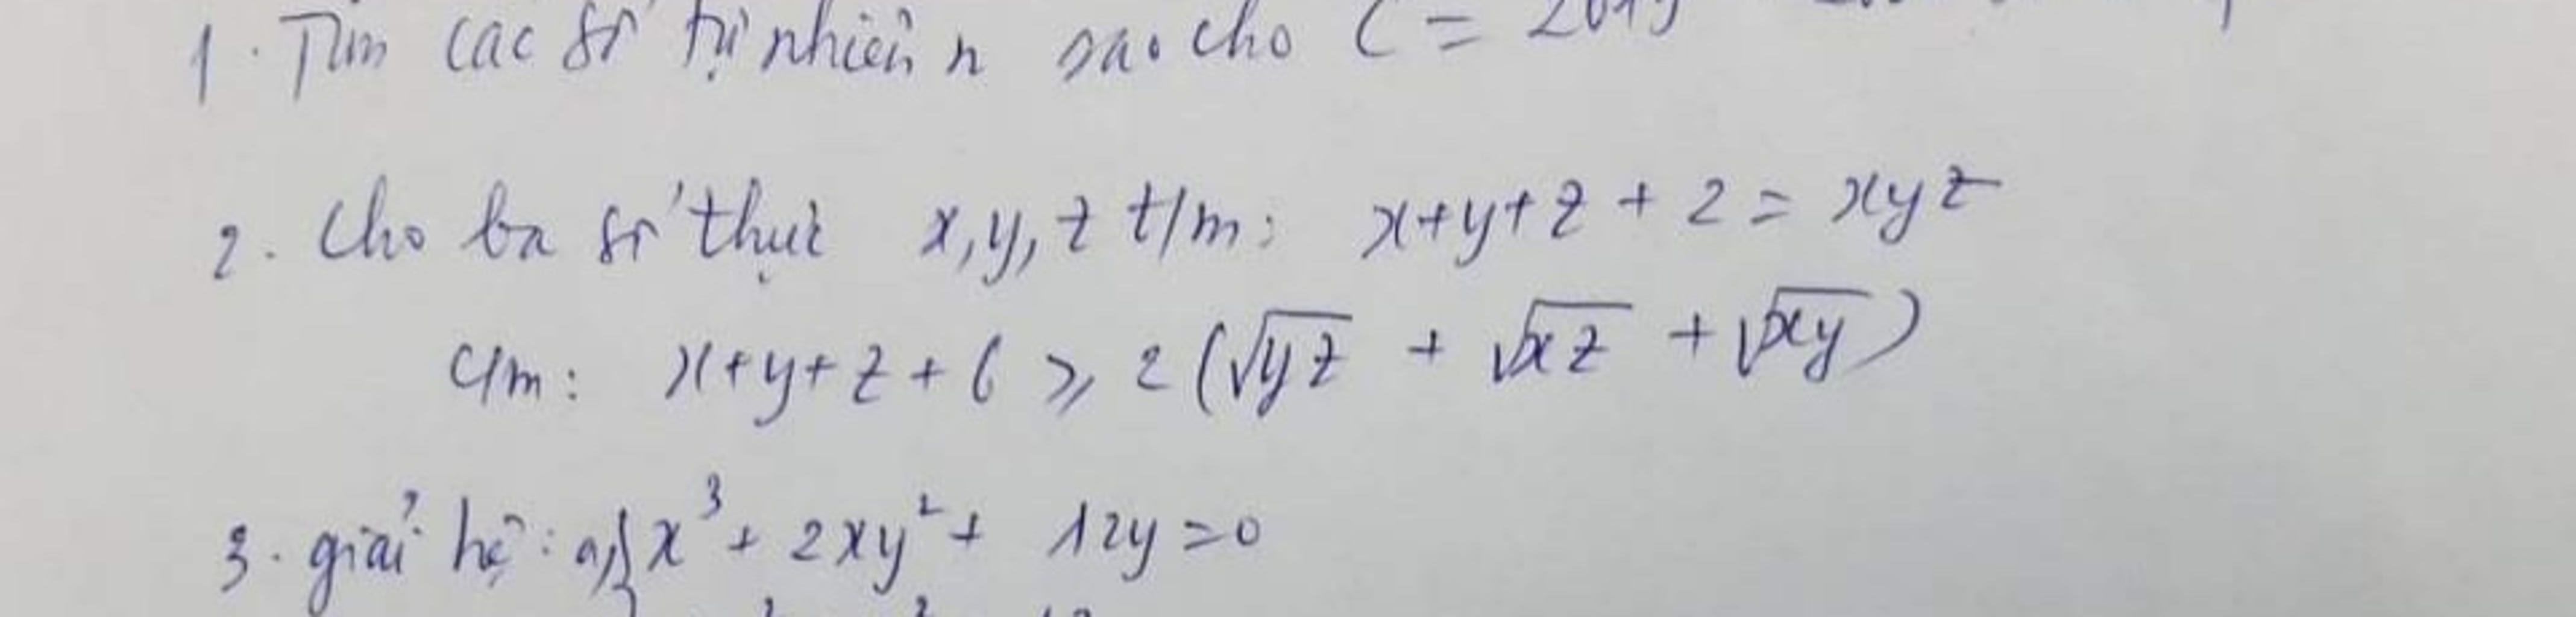 1. Tìm các số tự nhiên n sao cho C = 2019
2. Cho ba số thực x, y, z t/m: x+y+z+2 = xyz
C/m: x+y+z+6 ≥ 2(√yz + √xz + √xy)
3. giải hệ: a) { x³ + 2xy² + 12y = 0